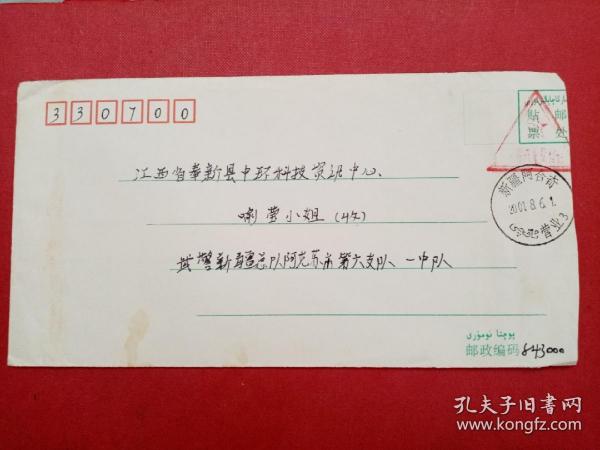 330700
江西省奉新县中环科技资讯中心、
喻莹小姐(收)
武警新疆总队阿克苏市第六支队 一中队
پوچتا نومۇرى
邮政编码 843000
贴邮票处
新疆阿合奇
2001.8.6.
营业3
孔夫子旧书网
www.kongfz.com